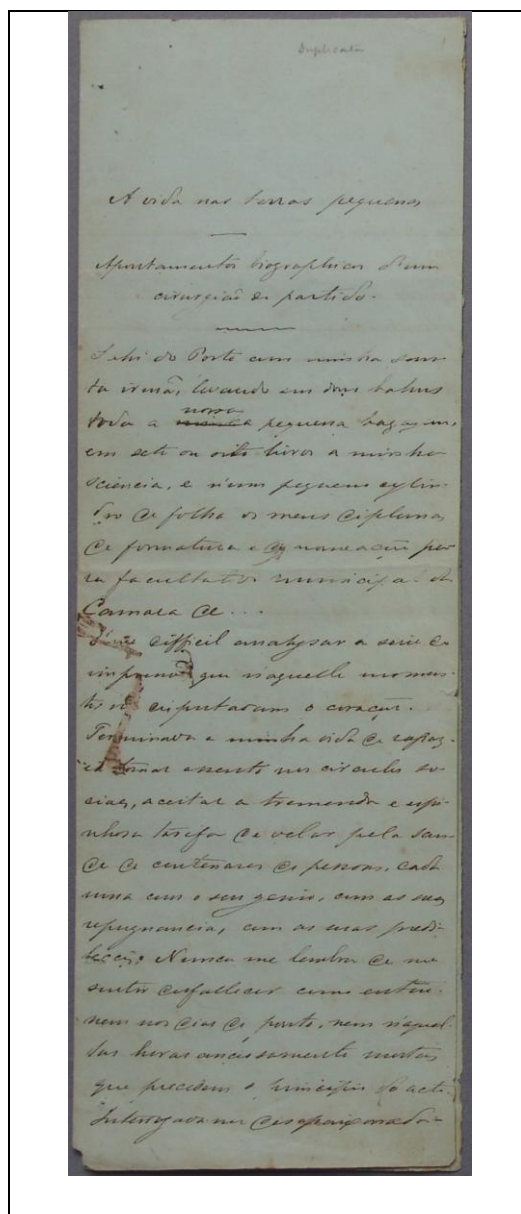 Duplicata
A vida nas terras pequenas
Apontamentos biographicos d'um
cirurgião de partido.
Sahi do Porto com minha san-
ta irmã, levando em dous bahus
toda a nossa pequena bagagem,
em sete ou oito livros a minha
sciencia, e n'um pequeno cylin-
dro de folha os meus diplomas
de formatura e de nomeação pa-
ra facultativo municipal da
Camara de...
difficil analysar a serie de
que n'aquelle momen-
to me disputavam o coração.
Terminava a minha vida de rapaz,
ia tomar assento nos circulos so-
ciaes, aceitar a tremenda e espi-
nhosa tarefa de velar pela sau-
de de centenares de pessoas, cada
uma com o seu genio, com as suas
repugnancias, com as suas predi-
lecções. Nunca me lembra de me
sentir desfallecer como então:
nem nos dias de ponto, nem n'aquel-
las horas anciosamente mortas
que precedem o principio do acto.
Interrogava-me desapaixonada-